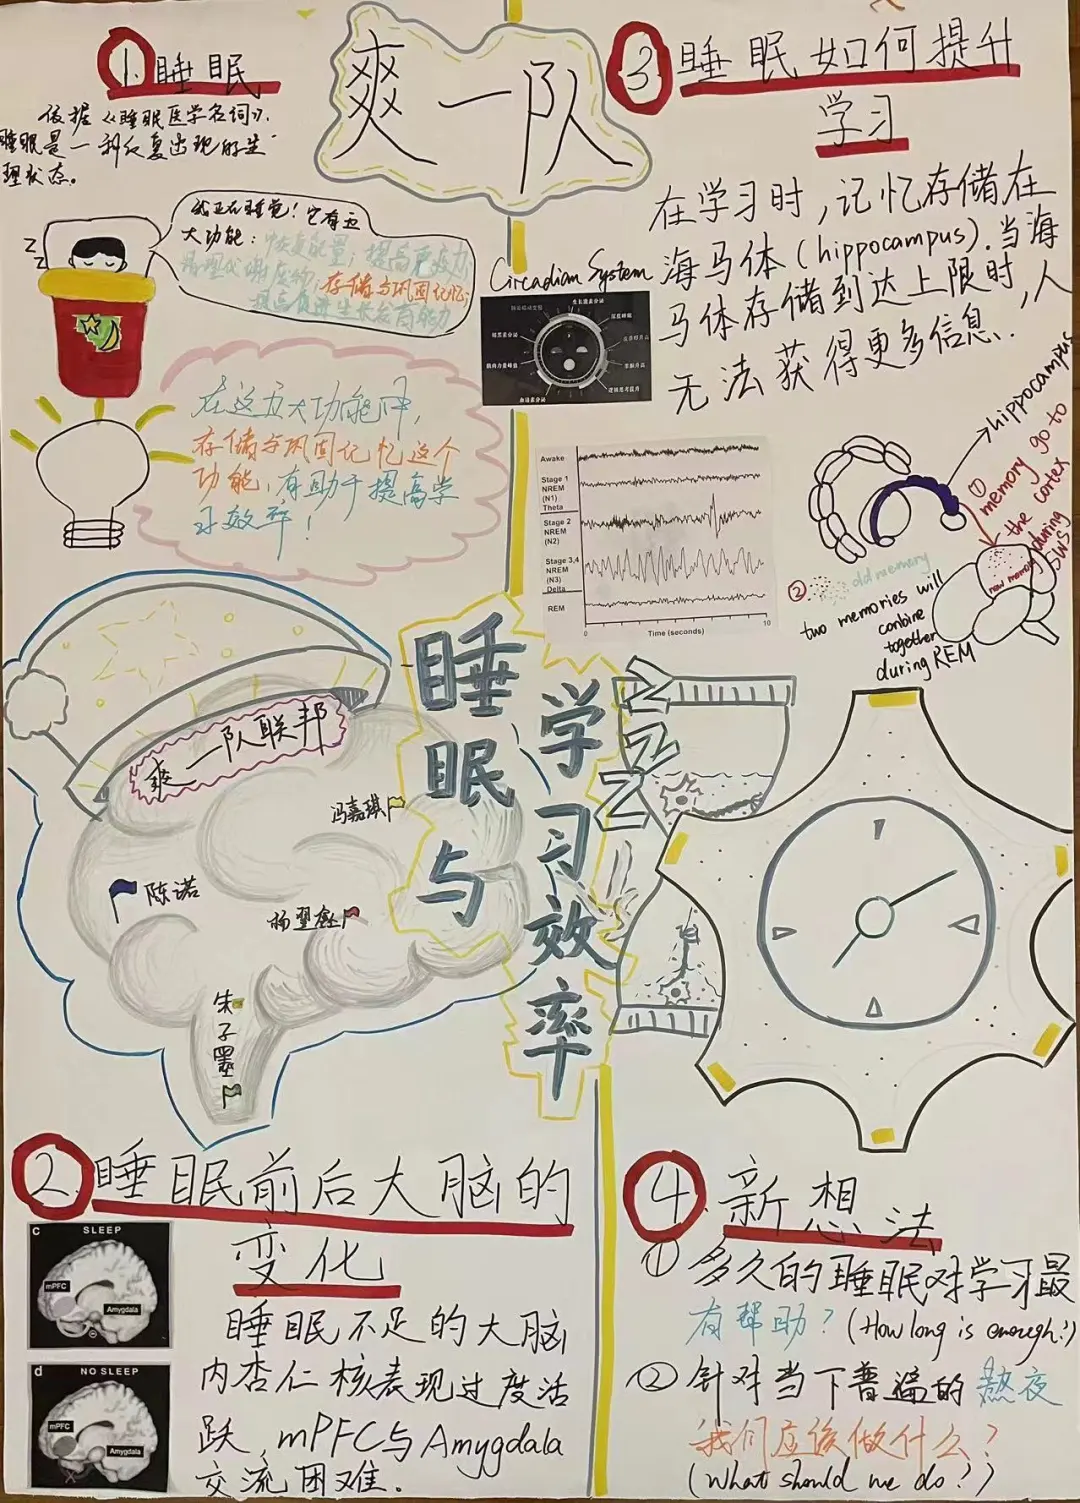 爽一队
1.睡眠
依据《睡眠医学名词》,
睡眠是一种反复出现的生
理状态。
z
z
我正在睡觉！它有五
大功能：恢复能量；提高免疫力
清理代谢废物；存储与巩固记忆；
促进生长发育能力
在这五大功能中，
存储与巩固记忆这个
功能，有助于提高学
习效率！
Circadian System
生长激素分泌
深度睡眠
Awake
Stage 1
NREM
(N1)
Theta
Stage 2
NREM
(N2)
Stage 3,4
NREM
(N3)
Delta
REM
0
10
Time (seconds)
3 睡眠如何提升
学习
在学习时，记忆存储在
海马体(hippocampus).当海
马体存储到达上限时,人
无法获得更多信息.
hippocampus
① memory go to
the cortex
during
SWS
new memory
② old memory
two memories will
conbine
together
during REM
睡眠与
学习效率
ZZZ
爽一队联邦
冯嘉琪
陈诺
杨翌
朱子墨
2.睡眠前后大脑的
变化
c SLEEP
mPFC
Amygdala
d NO SLEEP
mPFC
Amygdala
睡眠不足的大脑
内杏仁核表现过度活
跃，mPFC与Amygdala
交流困难.
4.新想法
①多久的睡眠对学习最
有帮助？(How long is enough?)
②针对当下普遍的熬夜
我们应该做什么？
(What should we do?)